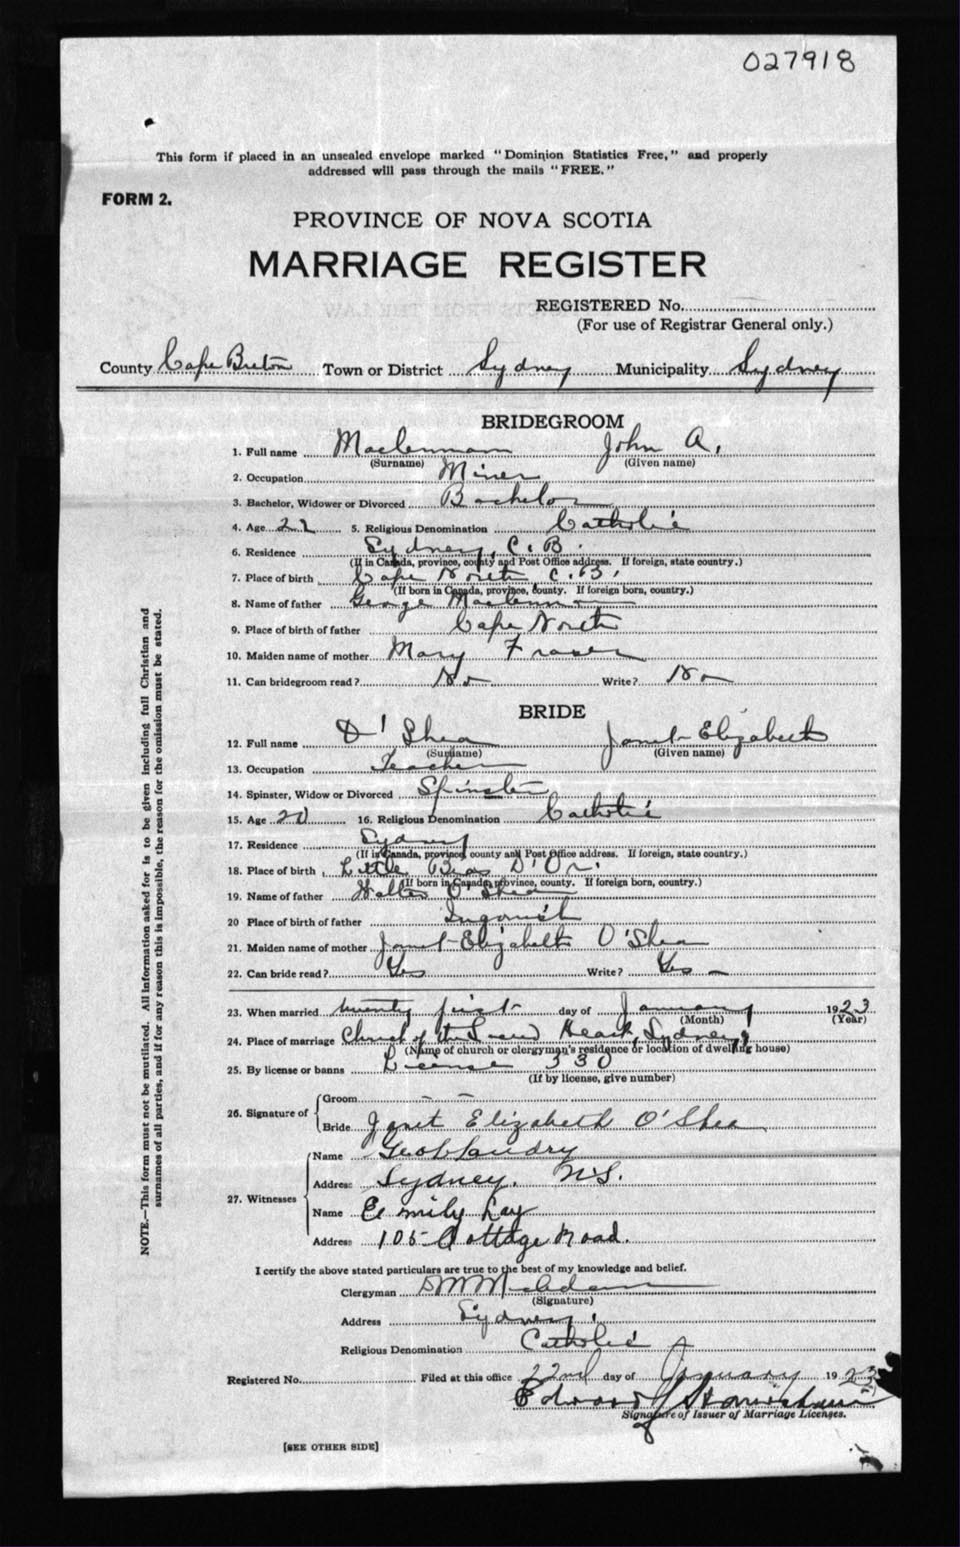 027918
This form if placed in an unsealed envelope marked "Dominion Statistics Free," and properly
addressed will pass through the mails "FREE."
FORM 2.
PROVINCE OF NOVA SCOTIA
MARRIAGE REGISTER
REGISTERED No.
(For use of Registrar General only.)
County Cape Breton Town or District Sydney Municipality Sydney
BRIDEGROOM
1. Full name Maclennan John A.
(Surname) (Given name)
2. Occupation Miner
3. Bachelor, Widower or Divorced Bachelor
4. Age 22 5. Religious Denomination Catholic
6. Residence Sydney, C.B.
(If in Canada, province, county and Post Office address. If foreign, state country.)
7. Place of birth Cape North C.B.
(If born in Canada, province, county. If foreign born, country.)
8. Name of father George Maclennan
9. Place of birth of father Cape North
10. Maiden name of mother Mary Fraser
11. Can bridegroom read? No Write? No
BRIDE
12. Full name O'Shea Janet Elizabeth
(Surname) (Given name)
13. Occupation Teacher
14. Spinster, Widow or Divorced Spinster
15. Age 20 16. Religious Denomination Catholic
17. Residence Sydney
(If in Canada, province, county and Post Office address. If foreign, state country.)
18. Place of birth Little Bras D'Or
(If born in Canada, province, county. If foreign born, country.)
19. Name of father Walter O'Shea
20 Place of birth of father Ingonish
21. Maiden name of mother Janet Elizabeth O'Shea
22. Can bride read? Yes Write? Yes
23. When married twenty first day of January 1923
(Month) (Year)
24. Place of marriage Church of the Sacred Heart, Sydney
(Name of church or clergyman's residence or location of dwelling house)
25. By license or banns License 330
(If by license, give number)
26. Signature of Groom
Bride Janet Elizabeth O'Shea
27. Witnesses
Name Geo Landry
Address Sydney. N.S.
Name Emily Lay
Address 105 Cottage Road.
I certify the above stated particulars are true to the best of my knowledge and belief.
Clergyman
(Signature)
Address Sydney
Religious Denomination Catholic
Registered No. Filed at this office 22nd day of January 1923
Edward
Signature of Issuer of Marriage Licenses.
[SEE OTHER SIDE]
NOTE.—This form must not be mutilated. All information asked for is to be given including full Christian and
surnames of all parties, and if for any reason this is impossible, the reason for the omission must be stated.